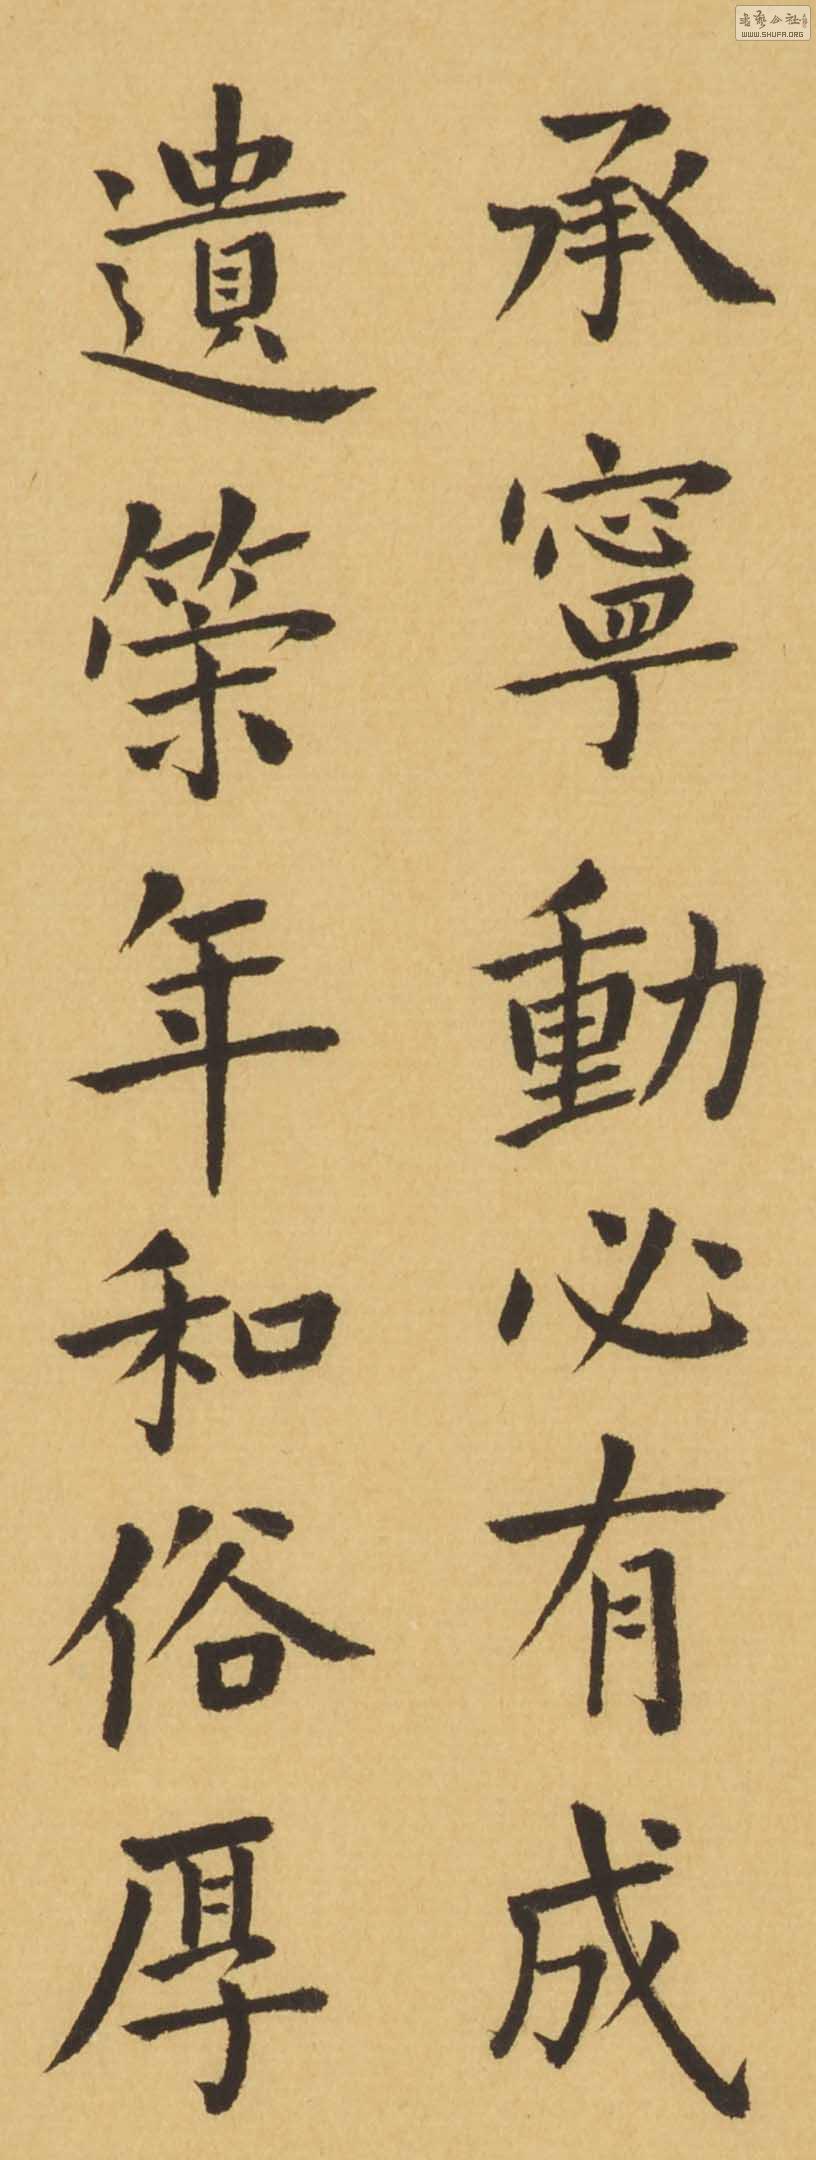 承寧動必有成
遺策年和俗厚
WWW.SHUFA.ORG